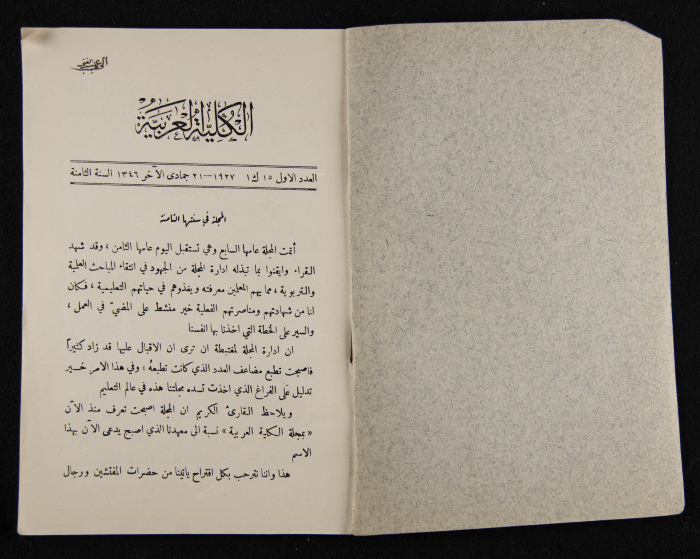 الكلية العربية
العدد الاول ١٥ ك١ ١٩٢٧ — ٢١ جمادى الآخر ١٣٤٦ السنة الثامنة
المجلة في سنتها الثامنة
أتمت المجلة عامها السابع وهي تستقبل اليوم عامها الثامن ، وقد شهد
القراء وايقنوا بما تبذله ادارة المجلة من الجهود في انتقاء المباحث العلمية
والتربوية ، مما يهم المعلمين معرفته ويغذوهم في حياتهم التعليمية ، فكان
لنا من شهادتهم ومناصرتهم الفعلية خير منشط على المضيّ في العمل ،
والسير على الخطة التي اخذنا بها انفسنا
ان ادارة المجلة لمغتبطة ان ترى ان الاقبال عليها قد زاد كثيراً
فاصبحت تطبع مضاعف العدد الذي كانت تطبعهُ ، وفي هذا الامر خير
تدليل عَلَى الفراغ الذي اخذت تسده مجلتنا هذه في عالم التعليم
ويلاحظ القارئ الكريم ان المجلة اصبحت تعرف منذ الآن
«بمجلة الكلية العربية» نسبة الى معهدنا الذي اصبح يدعى الآن بهذا
الاسم
هذا واننا نترحب بكل اقتراح ياتينا من حضرات المفتشين ورجال